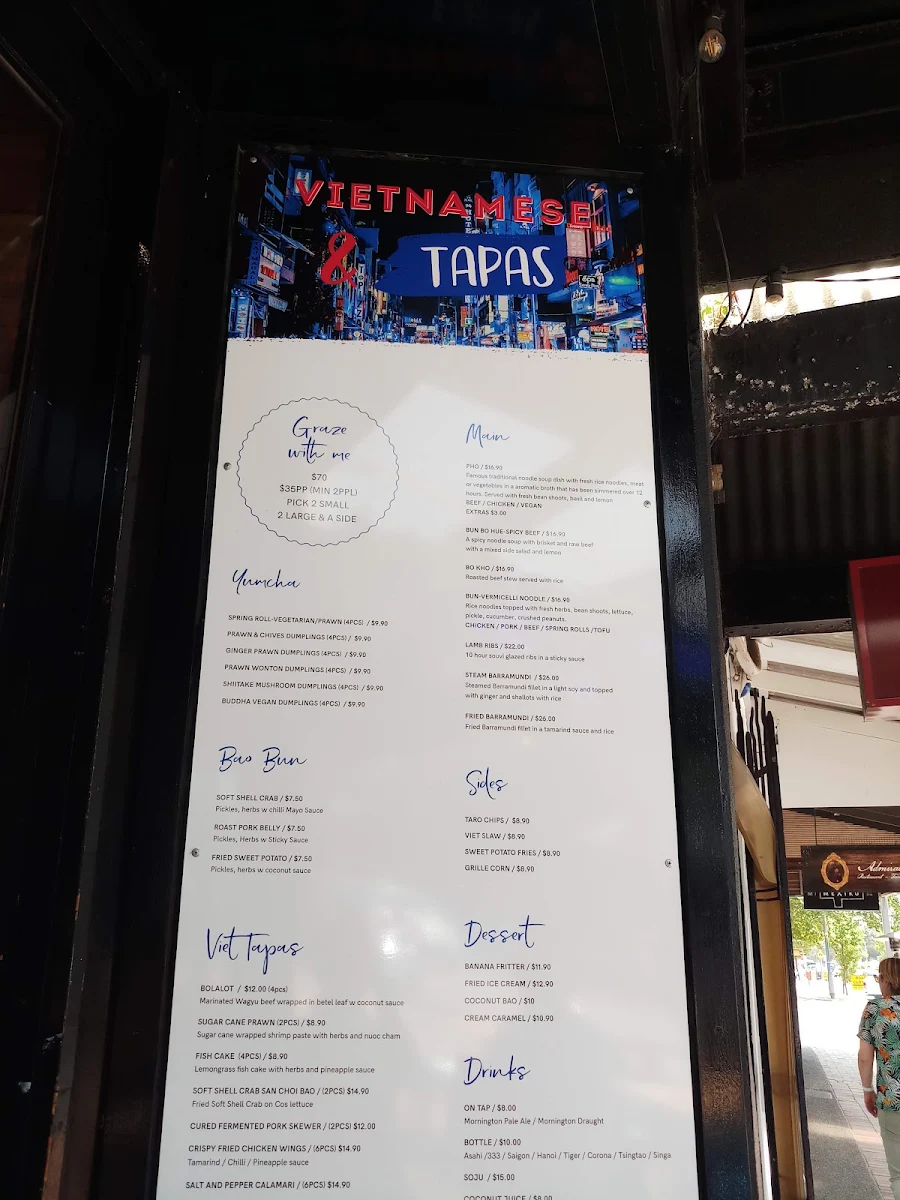 VIETNAMESE
& TAPAS
Graze
with me
$70
$35PP (MIN 2PPL)
PICK 2 SMALL
2 LARGE & A SIDE
Yumcha
SPRING ROLL-VEGETARIAN/PRAWN (4PCS) / $9.90
PRAWN & CHIVES DUMPLINGS (4PCS) / $9.90
GINGER PRAWN DUMPLINGS (4PCS) / $9.90
PRAWN WONTON DUMPLINGS (4PCS) / $9.90
SHIITAKE MUSHROOM DUMPLINGS (4PCS) / $9.90
BUDDHA VEGAN DUMPLINGS (4PCS) / $9.90
Bao Bun
SOFT SHELL CRAB / $7.50
Pickles, herbs w chilli Mayo Sauce
ROAST PORK BELLY / $7.50
Pickles, Herbs w Sticky Sauce
FRIED SWEET POTATO / $7.50
Pickles, herbs w coconut sauce
Viet Tapas
BOLALOT / $12.00 (4pcs)
Marinated Wagyu beef wrapped in betel leaf w coconut sauce
SUGAR CANE PRAWN (2PCS) / $8.90
Sugar cane wrapped shrimp paste with herbs and nuoc cham
FISH CAKE (4PCS) / $8.90
Lemongrass fish cake with herbs and pineapple sauce
SOFT SHELL CRAB SAN CHOI BAO / (2PCS) $14.90
Fried Soft Shell Crab on Cos lettuce
CURED FERMENTED PORK SKEWER / (2PCS) $12.00
CRISPY FRIED CHICKEN WINGS / (6PCS) $14.90
Tamarind / Chilli / Pineapple sauce
SALT AND PEPPER CALAMARI / (6PCS) $14.90
Main
PHO / $16.90
Famous traditional noodle soup dish with fresh rice noodles, meat
or vegetables in a aromatic broth that has been simmered over 12
hours. Served with fresh bean shoots, basil and lemon
BEEF / CHICKEN / VEGAN
EXTRAS $3.00
BUN BO HUE-SPICY BEEF / $16.90
A spicy noodle soup with brisket and raw beef
with a mixed side salad and lemon
BO KHO / $16.90
Roasted beef stew served with rice
BUN-VERMICELLI NOODLE / $16.90
Rice noodles topped with fresh herbs, bean shoots, lettuce,
pickle, cucumber, crushed peanuts.
CHICKEN / PORK / BEEF / SPRING ROLLS /TOFU
LAMB RIBS / $22.00
10 hour souvi glazed ribs in a sticky sauce
STEAM BARRAMUNDI / $26.00
Steamed Barramundi fillet in a light soy and topped
with ginger and shallots with rice
FRIED BARRAMUNDI / $26.00
Fried Barramundi fillet in a tamarind sauce and rice
Sides
TARO CHIPS / $8.90
VIET SLAW / $8.90
SWEET POTATO FRIES / $8.90
GRILLE CORN / $8.90
Dessert
BANANA FRITTER / $11.90
FRIED ICE CREAM / $12.90
COCONUT BAO / $10
CREAM CARAMEL / $10.90
Drinks
ON TAP / $8.00
Mornington Pale Ale / Mornington Draught
BOTTLE / $10.00
Asahi /333 / Saigon / Hanoi / Tiger / Corona / Tsingtao / Singa
SOJU / $15.00
COCONUT JUICE / $8.00